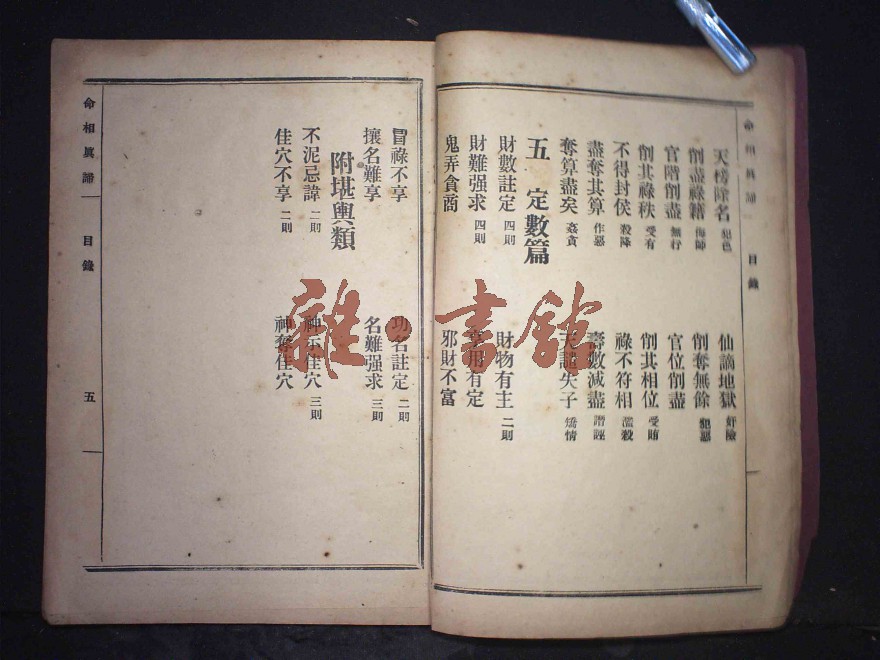 命相真諦 目錄
天榜除名 犯色 仙謫地獄 奸險
削盡祿籍 侮師 削奪無餘 犯惡
官階削盡 無行 官位削盡
削其祿秩 受有 削其相位 受賄
不得封侯 殺降 祿不符相 濫殺
盡奪其算 作惡 壽數減盡 譖誣
奪算盡矣 姦貪 天譴失子 矯情
五 定數篇
財數註定 四則 財物有主 二則
財難强求 四則 享用有定
鬼弄貪商 邪財不富
冒祿不享 功名註定 二則
攘名難享 名難强求 三則
附堪輿類
不泥忌諱 二則 神示佳穴 三則
佳穴不享 二則 神奪佳穴
命相真諦 目錄 五
雜·書館